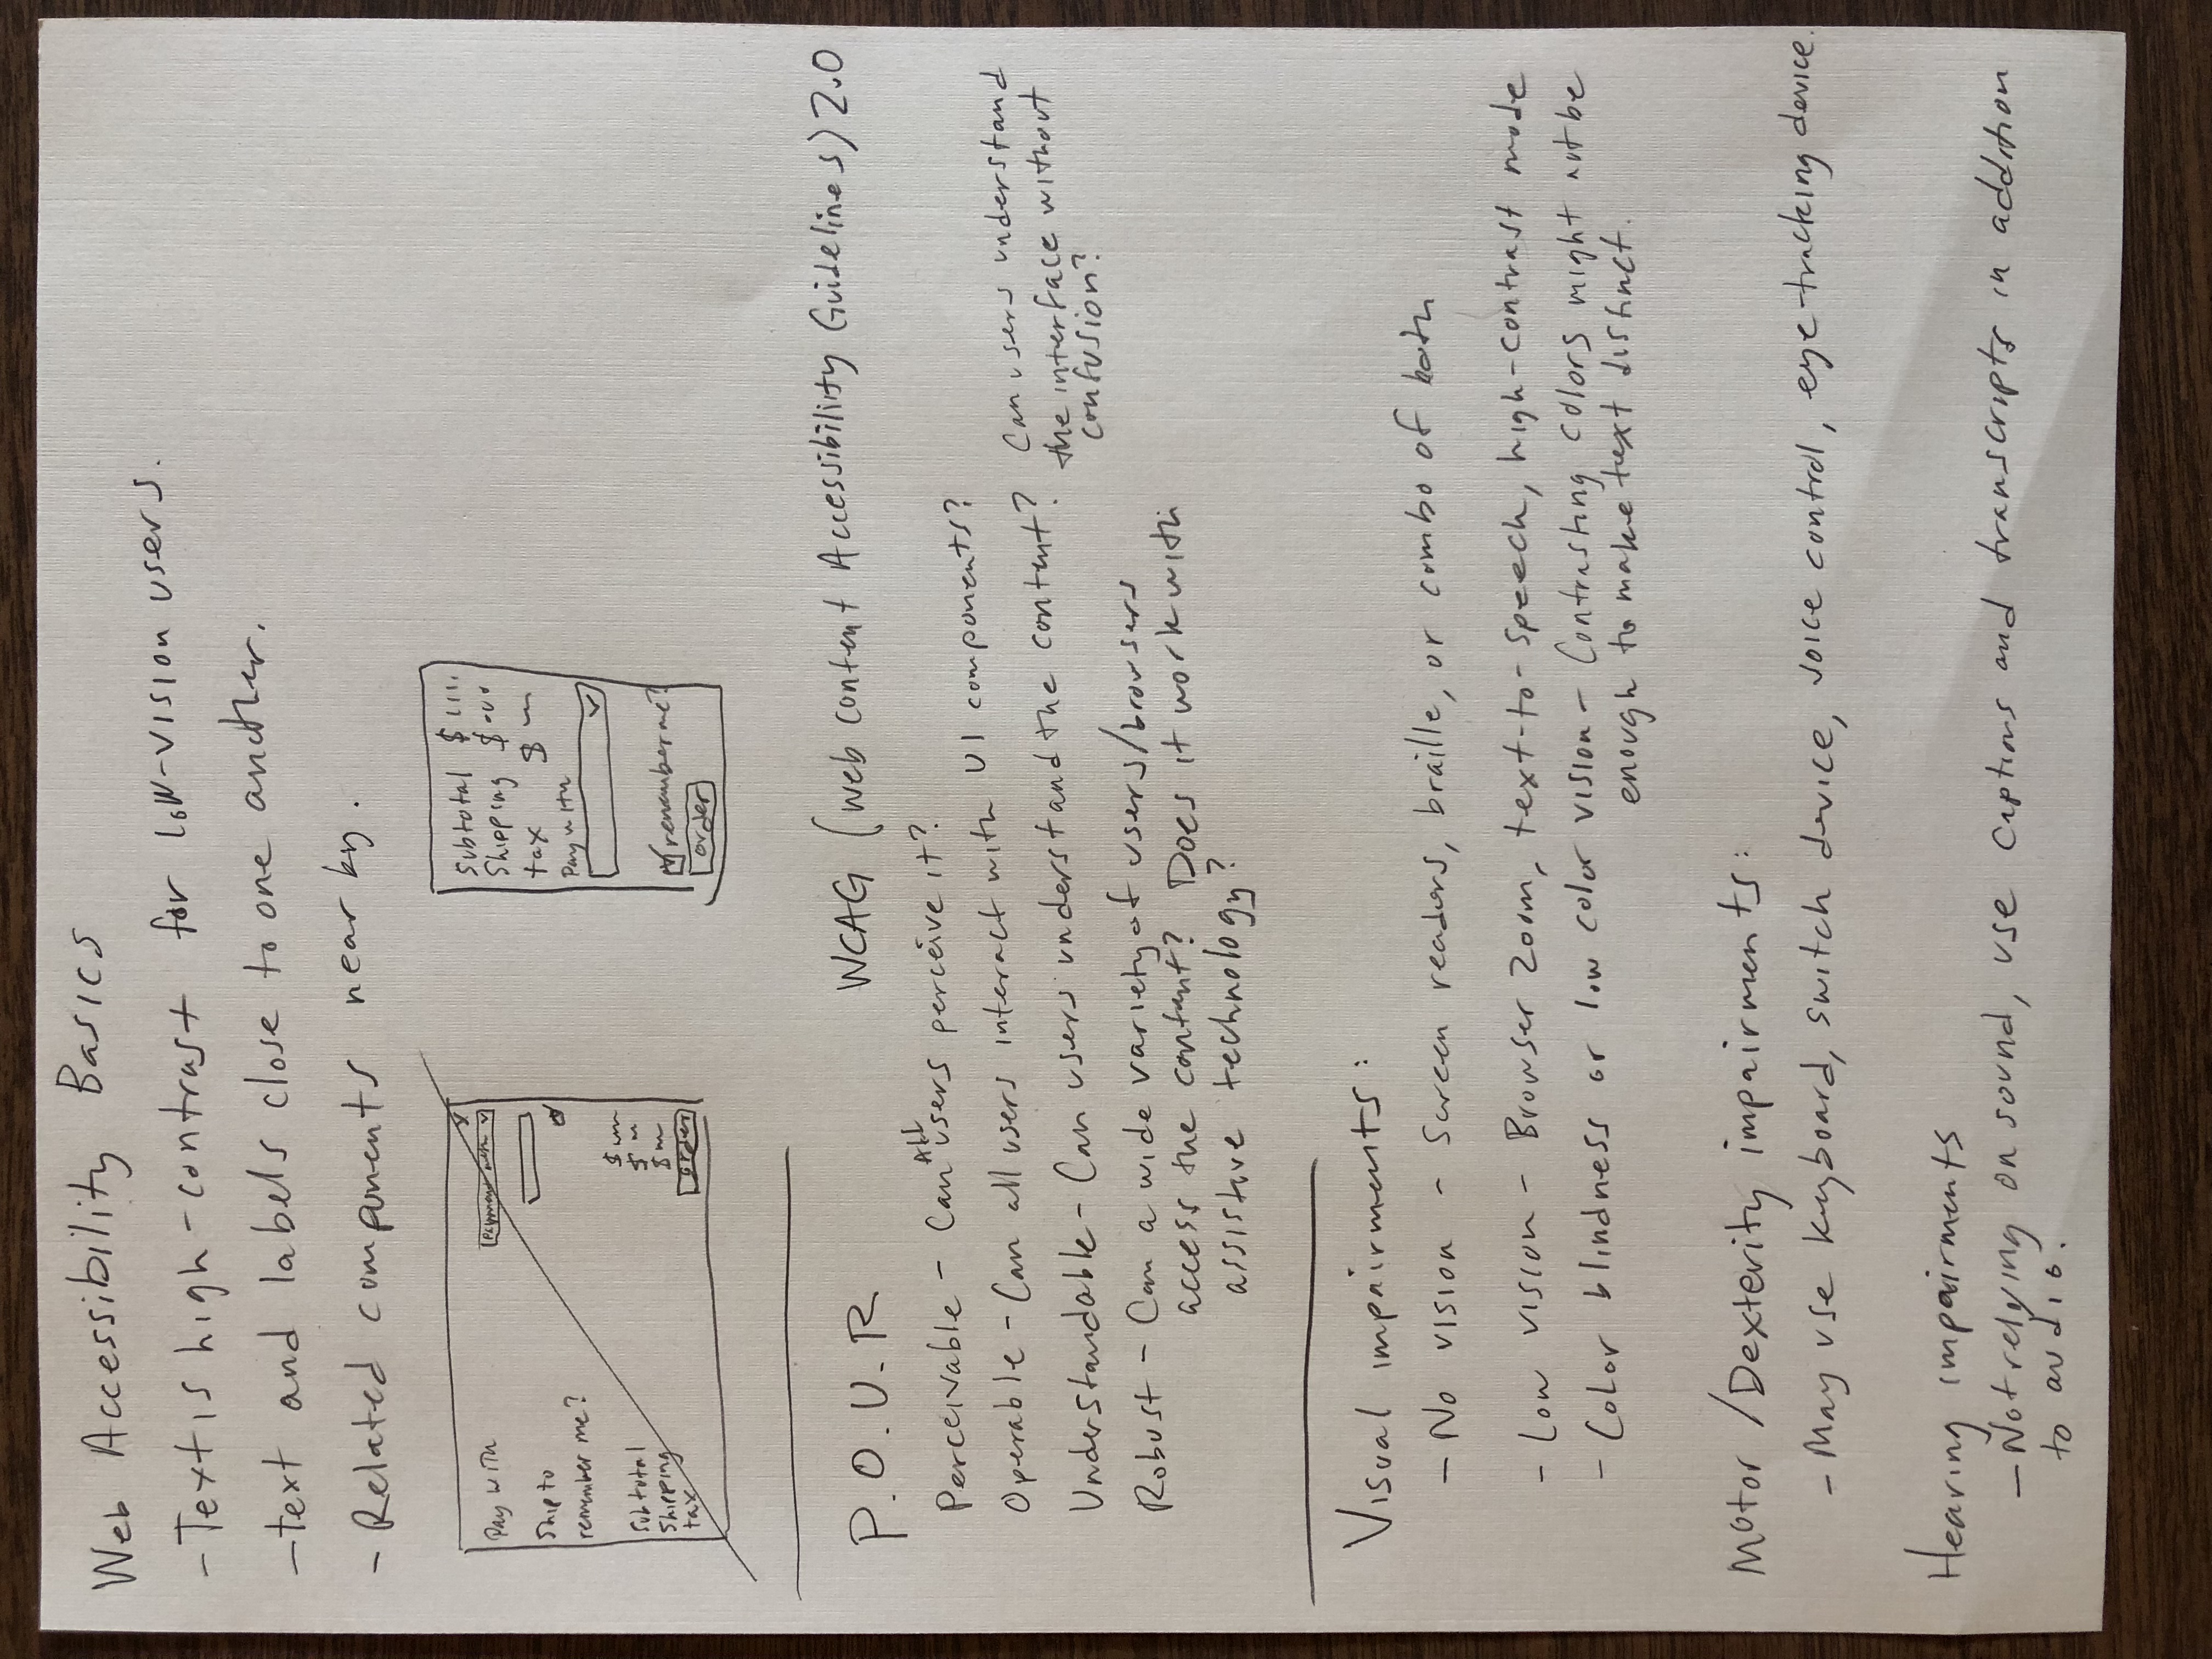 Web Accessibility Basics
- Text is high-contrast for low-vision users.
- text and labels close to one another.
- Related components near by.
Pay with
Ship to
remember me?
Subtotal $
Shipping $
tax $
order
Subtotal $
Shipping $
tax $
Pay with
remember me?
order
P.O.U.R
WCAG (Web Content Accessibility Guidelines) 2.0
Perceivable - Can All users perceive it?
Operable - Can all users interact with UI components?
Understandable - Can users understand the content? Can users understand
the interface without
confusion?
Robust - Can a wide variety of users/browsers
access the content? Does it work with
assistive technology?
Visual impairments:
- No vision - Screen readers, braille, or combo of both
- Low vision - Browser zoom, text-to-speech, high-contrast mode
- Color blindness or low color vision - Contrasting colors might not be
enough to make text distinct.
Motor/Dexterity impairments:
- May use keyboard, switch device, voice control, eye-tracking device.
Hearing impairments
- Not relying on sound, use captions and transcripts in addition
to audio.